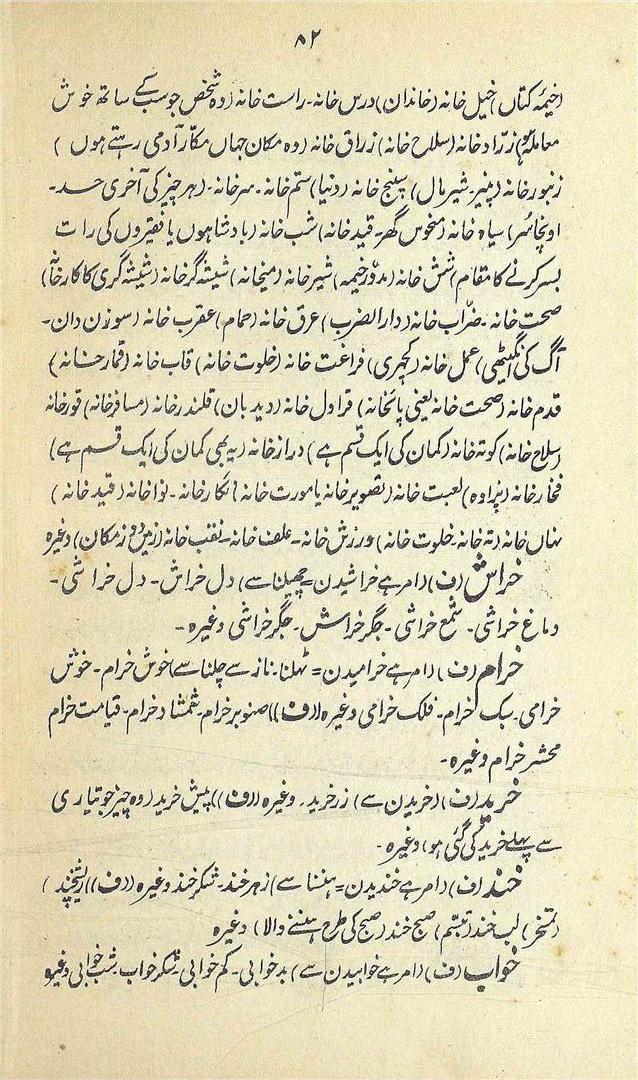 ۸۲
(خیمۂ کتاں) خیل خانہ (خاندان) درس خانہ۔ راست خانہ (وہ شخص جو سب کے ساتھ خوش
معاملہ ہو) زرّاد خانہ (سلاح خانہ) زراق خانہ (وہ مکان جہاں مکّار آدمی رہتے ہوں)
زنبور خانہ (پنیر۔ شیرمال) سپنج خانہ (دنیا) ستم خانہ۔ سرخانہ۔ (ہر چیز کی آخری حد۔
اونچا سُر) سیاہ خانہ (منحوس گھر۔ قید خانہ) شب خانہ (بادشاہوں یا فقیروں کی رات
بسر کرنے کا مقام) شش خانہ (مدوّر خیمہ) شیر خانہ (میخانہ) شیشہ گر خانہ (شیشہ گری کا کارخانہ)
صحت خانہ۔ ضرّاب خانہ (دار الضرب) عرق خانہ (حمام) عقرب خانہ (سوزن دان۔
آگ کی انگیٹھی) عمل خانہ (کچہری) فراغت خانہ (خلوت خانہ) قاب خانہ (قمار خانہ)
قدم خانہ (صحت خانہ یعنی پائخانہ) قراول خانہ (دیدبان) قلندر خانہ (مسافر خانہ) قور خانہ
(سلاح خانہ) کوتہ خانہ (کمان کی ایک قسم ہے) دراز خانہ (یہ بھی کمان کی ایک قسم ہے)
فخار خانہ (پزاوہ) لعبت خانہ (تصویر خانہ یا مورت خانہ) نگار خانہ۔ نوا خانہ (قید خانہ)
نہاں خانہ (تہ خانہ۔ خلوت خانہ) ورزش خانہ۔ علف خانہ۔ نقب خانہ (زمین دوز مکان) وغیرہ
خراش (ف) (امر ہے خراشیدن = چھیلنا سے) دل خراش۔ دل خراشی۔
دماغ خراشی۔ سمع خراشی۔ جگر خراش۔ جگر خراشی وغیرہ۔
خرام (ف) (امر ہے خرامیدن = ٹہلنا۔ ناز سے چلنا سے) خوش خرام۔ خوش
خرامی۔ سبک خرام۔ فلک خرامی وغیرہ ((ف)) صنوبر خرام۔ شمشاد خرام۔ قیامت خرام
محشر خرام وغیرہ۔
خرید (ف) (خریدن سے) زر خرید۔ وغیرہ ((ف)) پیش خرید (وہ چیز جو تیاری
سے پہلے خرید کی گئی ہو) وغیرہ۔
خند (ف) (امر ہے خندیدن = ہنسنا سے) زہر خند۔ شکر خند وغیرہ ((ف)) ریشخند)
(تمسخر) لب خند (تبسّم) صبح خند (صبح کی طرح ہنسنے والا) وغیرہ
خواب (ف) (امر ہے خوابیدن سے) بد خوابی۔ کم خوابی۔ شکر خواب۔ شب خوابی وغیرہ